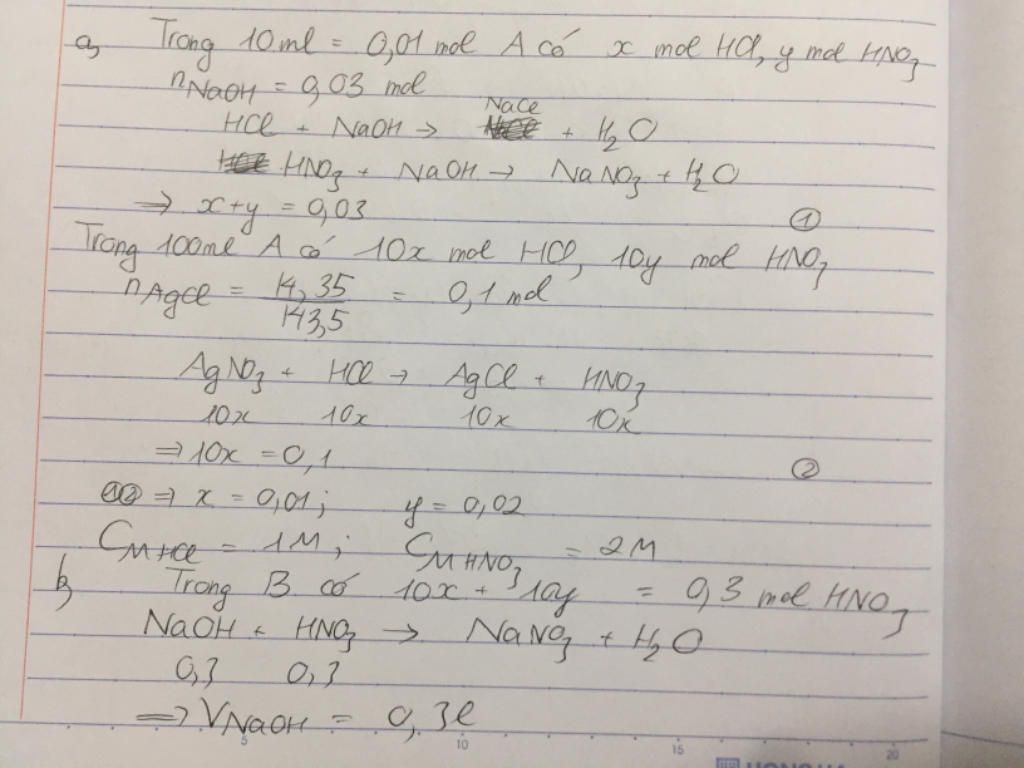 a, Trong 10ml = 0,01 mol A có x mol HCl, y mol HNO₃
nNaOH = 0,03 mol
HCl + NaOH → NaCl + H₂O
HNO₃ + NaOH → NaNO₃ + H₂O
⇒ x+y = 0,03 ①
Trong 100ml A có 10x mol HCl, 10y mol HNO₃
nAgCl = 14,35 / 143,5 = 0,1 mol
AgNO₃ + HCl → AgCl + HNO₃
10x 10x 10x 10x
⇒ 10x = 0,1 ②
①② ⇒ x = 0,01; y = 0,02
CM HCl = 1M; CM HNO₃ = 2M
b, Trong B có 10x + 10y = 0,3 mol HNO₃
NaOH + HNO₃ → NaNO₃ + H₂O
0,3 0,3
⇒ VNaOH = 0,3l
5 10 15 20